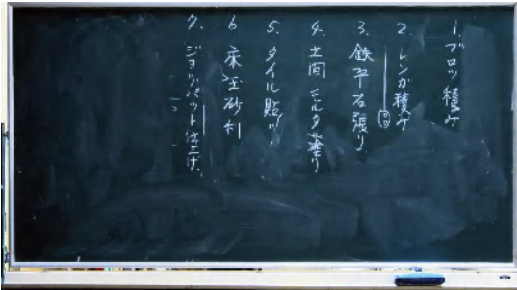 1. ブロッ積み
2. レンガ積み
3. 鉄平石張り
4. 土間モルタル塗り
5. タイル貼り
6 床玉砂利
7. ジョリパット仕上げ